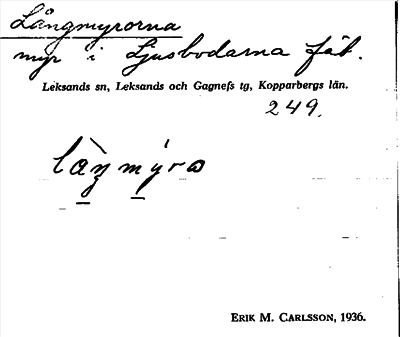 Långmyrorna
myr i Ljusbodarna fäb.
Leksands sn, Leksands och Gagnefs tg, Kopparbergs län.
249.
làŋmýra
ERIK M. CARLSSON, 1936.